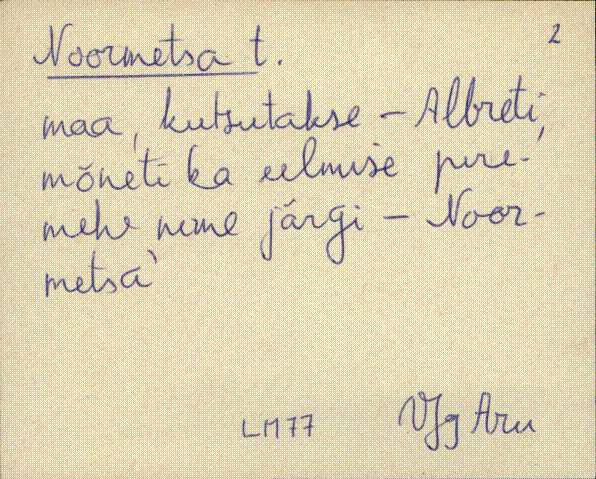 2
Noormetsa t.
maa, kutsutakse – Albreti,
mõneti ka eelmise pere-
mehe nime järgi – Noor-
metsa`
LM77 VJg Aru